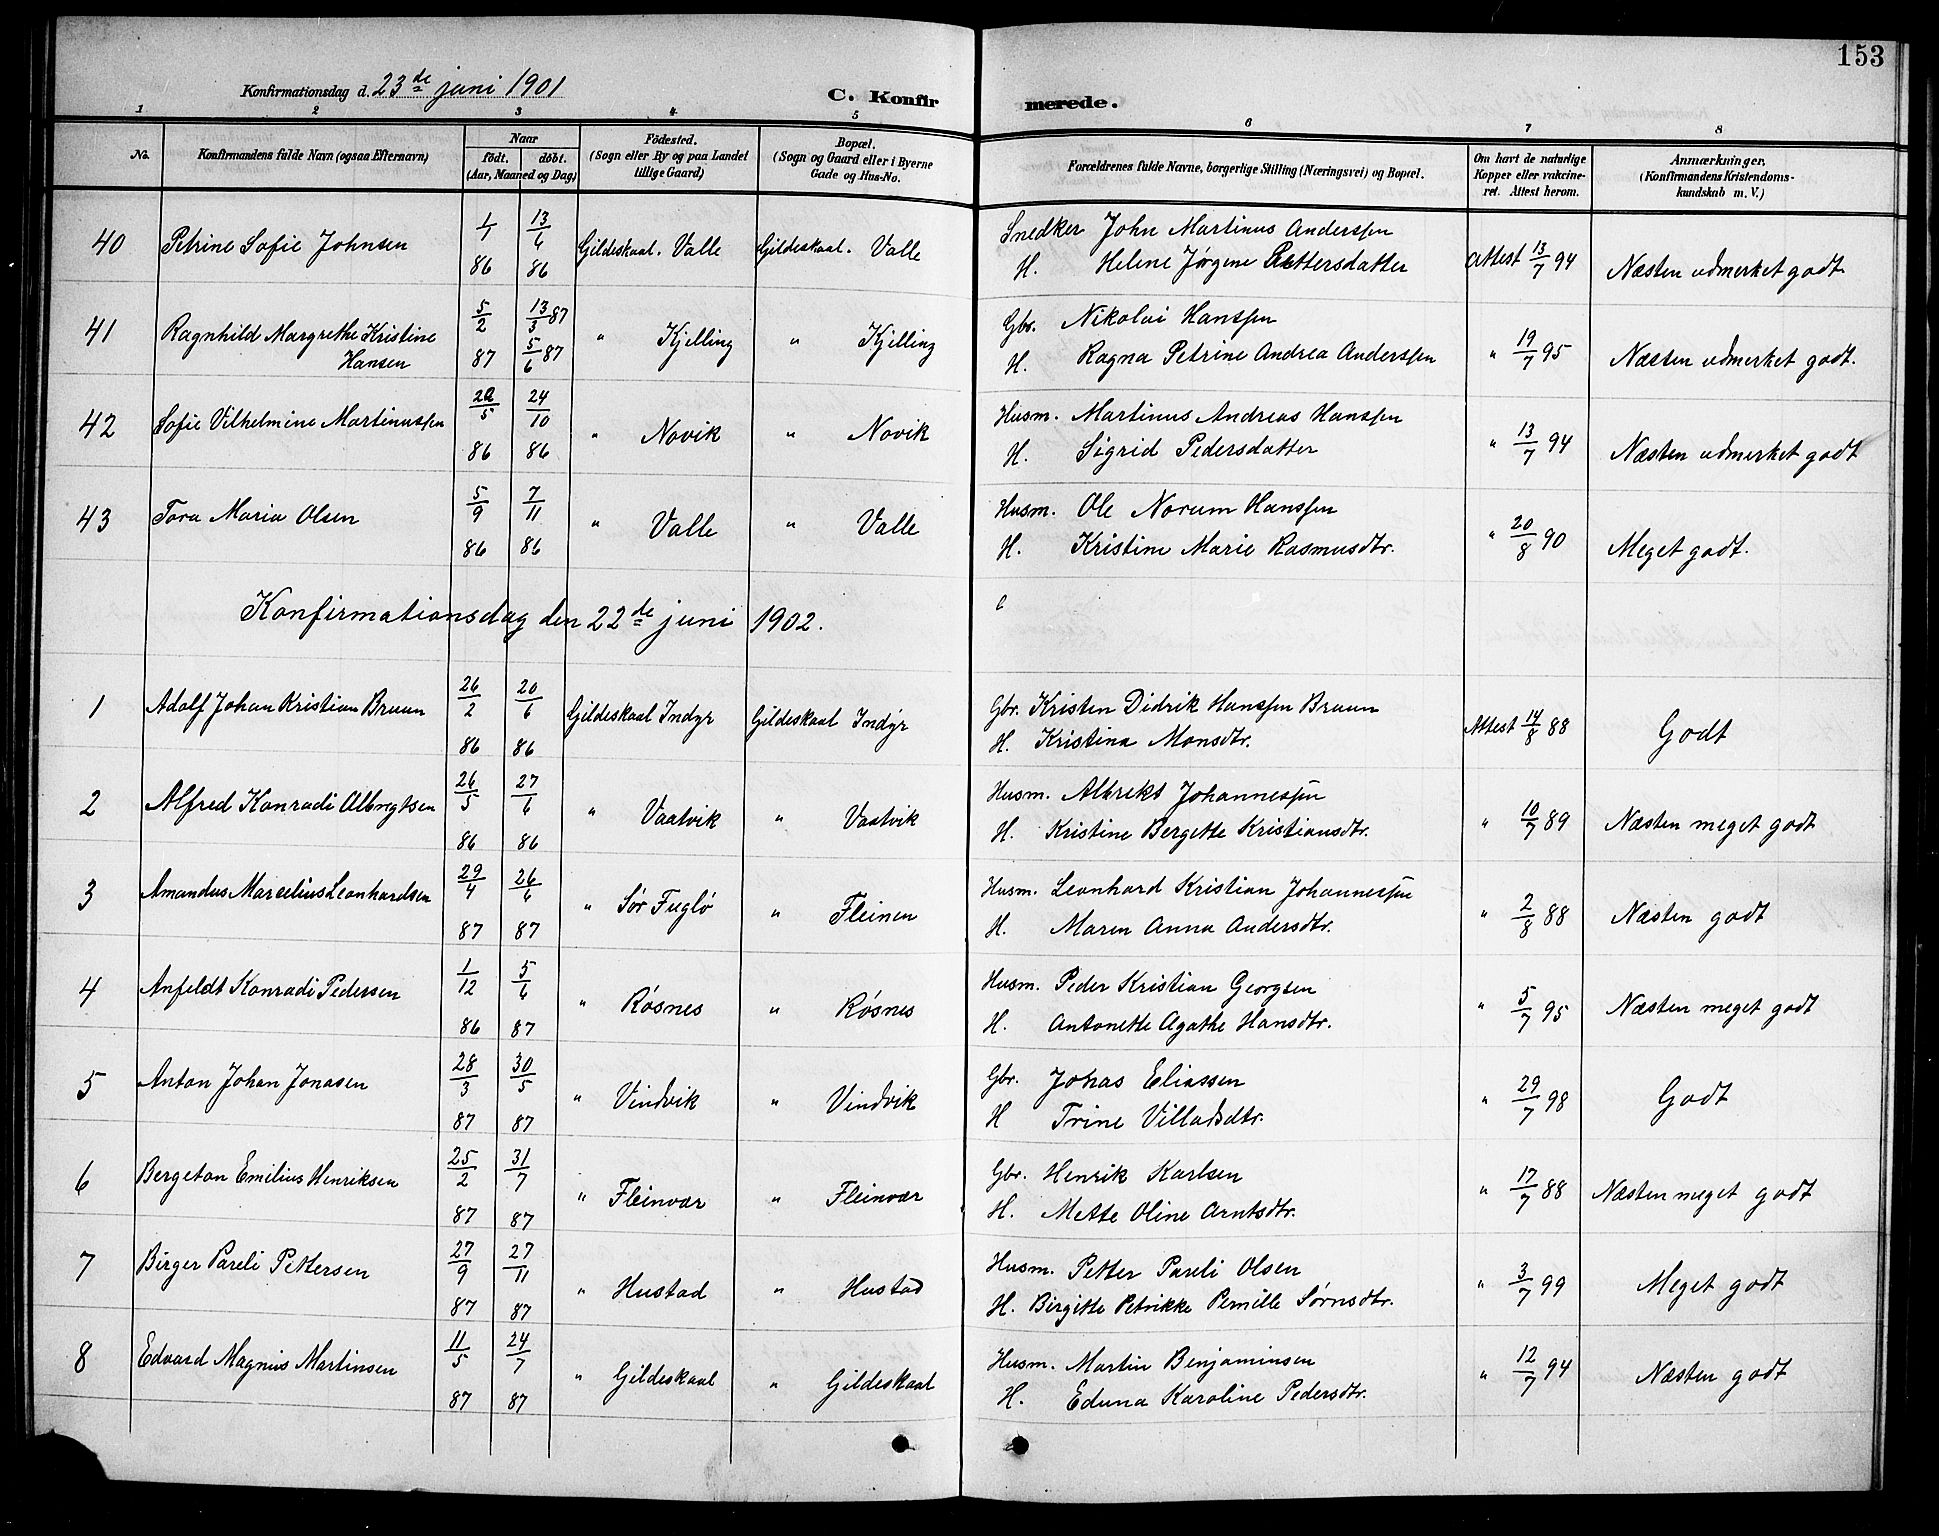 153
Konfirmationsdag d. 23de juni 1901
C. Konfirmerede.
1 2 3 4 5 6 7 8
No.
Konfirmandens fulde Navn (ogsaa Efternavn)
Naar
födt. döbt.
(Aar, Maaned og Dag)
Födested.
(Sogn eller By og paa Landet
tillige Gaard)
Bopæl.
(Sogn og Gaard eller i Byerne
Gade og Hus-No.
Forældrenes fulde Navne, borgerlige Stilling (Næringsvei) og Bopæl.
Om havt de naturlige
Kopper eller vakcine-
ret. Attest herom.
Anmærkninger,
(Konfirmandens Kristendoms-
kundskab m. V.)
40 Petrine Sofie Johnsen 1/1 86 13/6 86 Gildeskaal. Valle Gildeskaal. Valle Snedker John Martinus Anderssen
H. Helene Jørgene Pettersdatter Attest 13/7 94 Næsten udmerket godt.
41 Ragnhild Margrethe Kristine 5/2 87 13/3 87 5/6 87 " Kjelling " Kjelling Gbr. Nikolai Hanssen
Hansen H. Ragna Petrine Andrea Anderssen " 19/7 95 Næsten udmerket godt.
42 Sofie Vilhelmine Martinussen 22/5 86 24/10 86 " Novik " Novik Husm. Martinus Andreas Hanssen
H. Sigrid Pedersdatter " 13/7 94 Næsten udmerket godt
43 Tora Maria Olsen 5/9 86 7/11 86 " Valle " Valle Husm. Ole Norum Hanssen
H. Kristine Marie Rasmusdtr. " 20/8 90 Meget godt.
Konfirmationsdag den 22de juni 1902.
1 Adolf Johan Kristian Bruun 26/2 86 20/6 86 Gildeskaal Indyr Gildeskaal Indyr Gbr. Kristen Didrik Hanssen Bruun
H. Kristina Monsdtr. Attest 14/8 88 Godt
2 Alfred Konradi Albregtsen 26/5 86 27/6 86 " Vaatvik " Vaatvik Husm. Albrekt Johannessen
H. Kristine Bergette Kristiansdtr. " 10/7 89 Næsten meget godt
3 Amandus Marcelius Leonhardsen 29/4 87 26/6 87 " Sør Fuglø " Fleinen Husm. Leonhard Kristian Johannessen
H. Maren Anna Andersdtr. " 2/8 88 Næsten godt
4 Anfeldt Konradi Pedersen 1/12 86 5/6 87 " Røsnes " Røsnes Husm. Peder Kristian Georgsen
H. Antonette Agathe Hansdtr. " 5/7 95 Næsten meget godt
5 Anton Johan Jonasen 28/3 87 30/5 87 " Vindvik " Vindvik Gbr. Johas Eliassen
H Trine Villadsdtr. " 29/7 98 Godt
6 Bergeton Emilius Henriksen 25/2 87 31/7 87 " Fleinvær " Fleinvær Gbr. Henrik Karlsen
H. Mette Oline Arntsdtr. " 17/7 88 Næsten meget godt
7 Birger Pareli Pettersen 27/9 87 27/11 87 " Hustad " Hustad Husm. Petter Pareli Olsen
H. Birgitte Petrikke Pernille Sørnsdtr. " 3/7 99 Meget godt
8 Edvard Magnus Martinsen 11/5 87 24/7 87 " Gildeskaal " Gildeskaal Husm. Martin Benjaminsen
H. Eduna Karoline Pedersdtr. " 12/7 94 Næsten godt